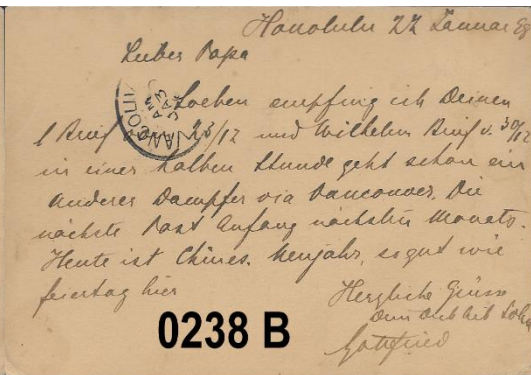 Honolulu 22 Januar
Lieber Papa
Soeben empfing ich Deinen
l Brief 23/12 und Wilhelms Brief v. 30/12
in einer halben Stunde geht schon ein
anderer Dampfer via Vancouver. Die
nächste Post Anfang nächsten Monats.
Heute ist Chines. Neujahr, so gut wie
feiertag hier
Herzliche Grüsse
Dein Dich lieb. Sohn
Gottfried
0238 B